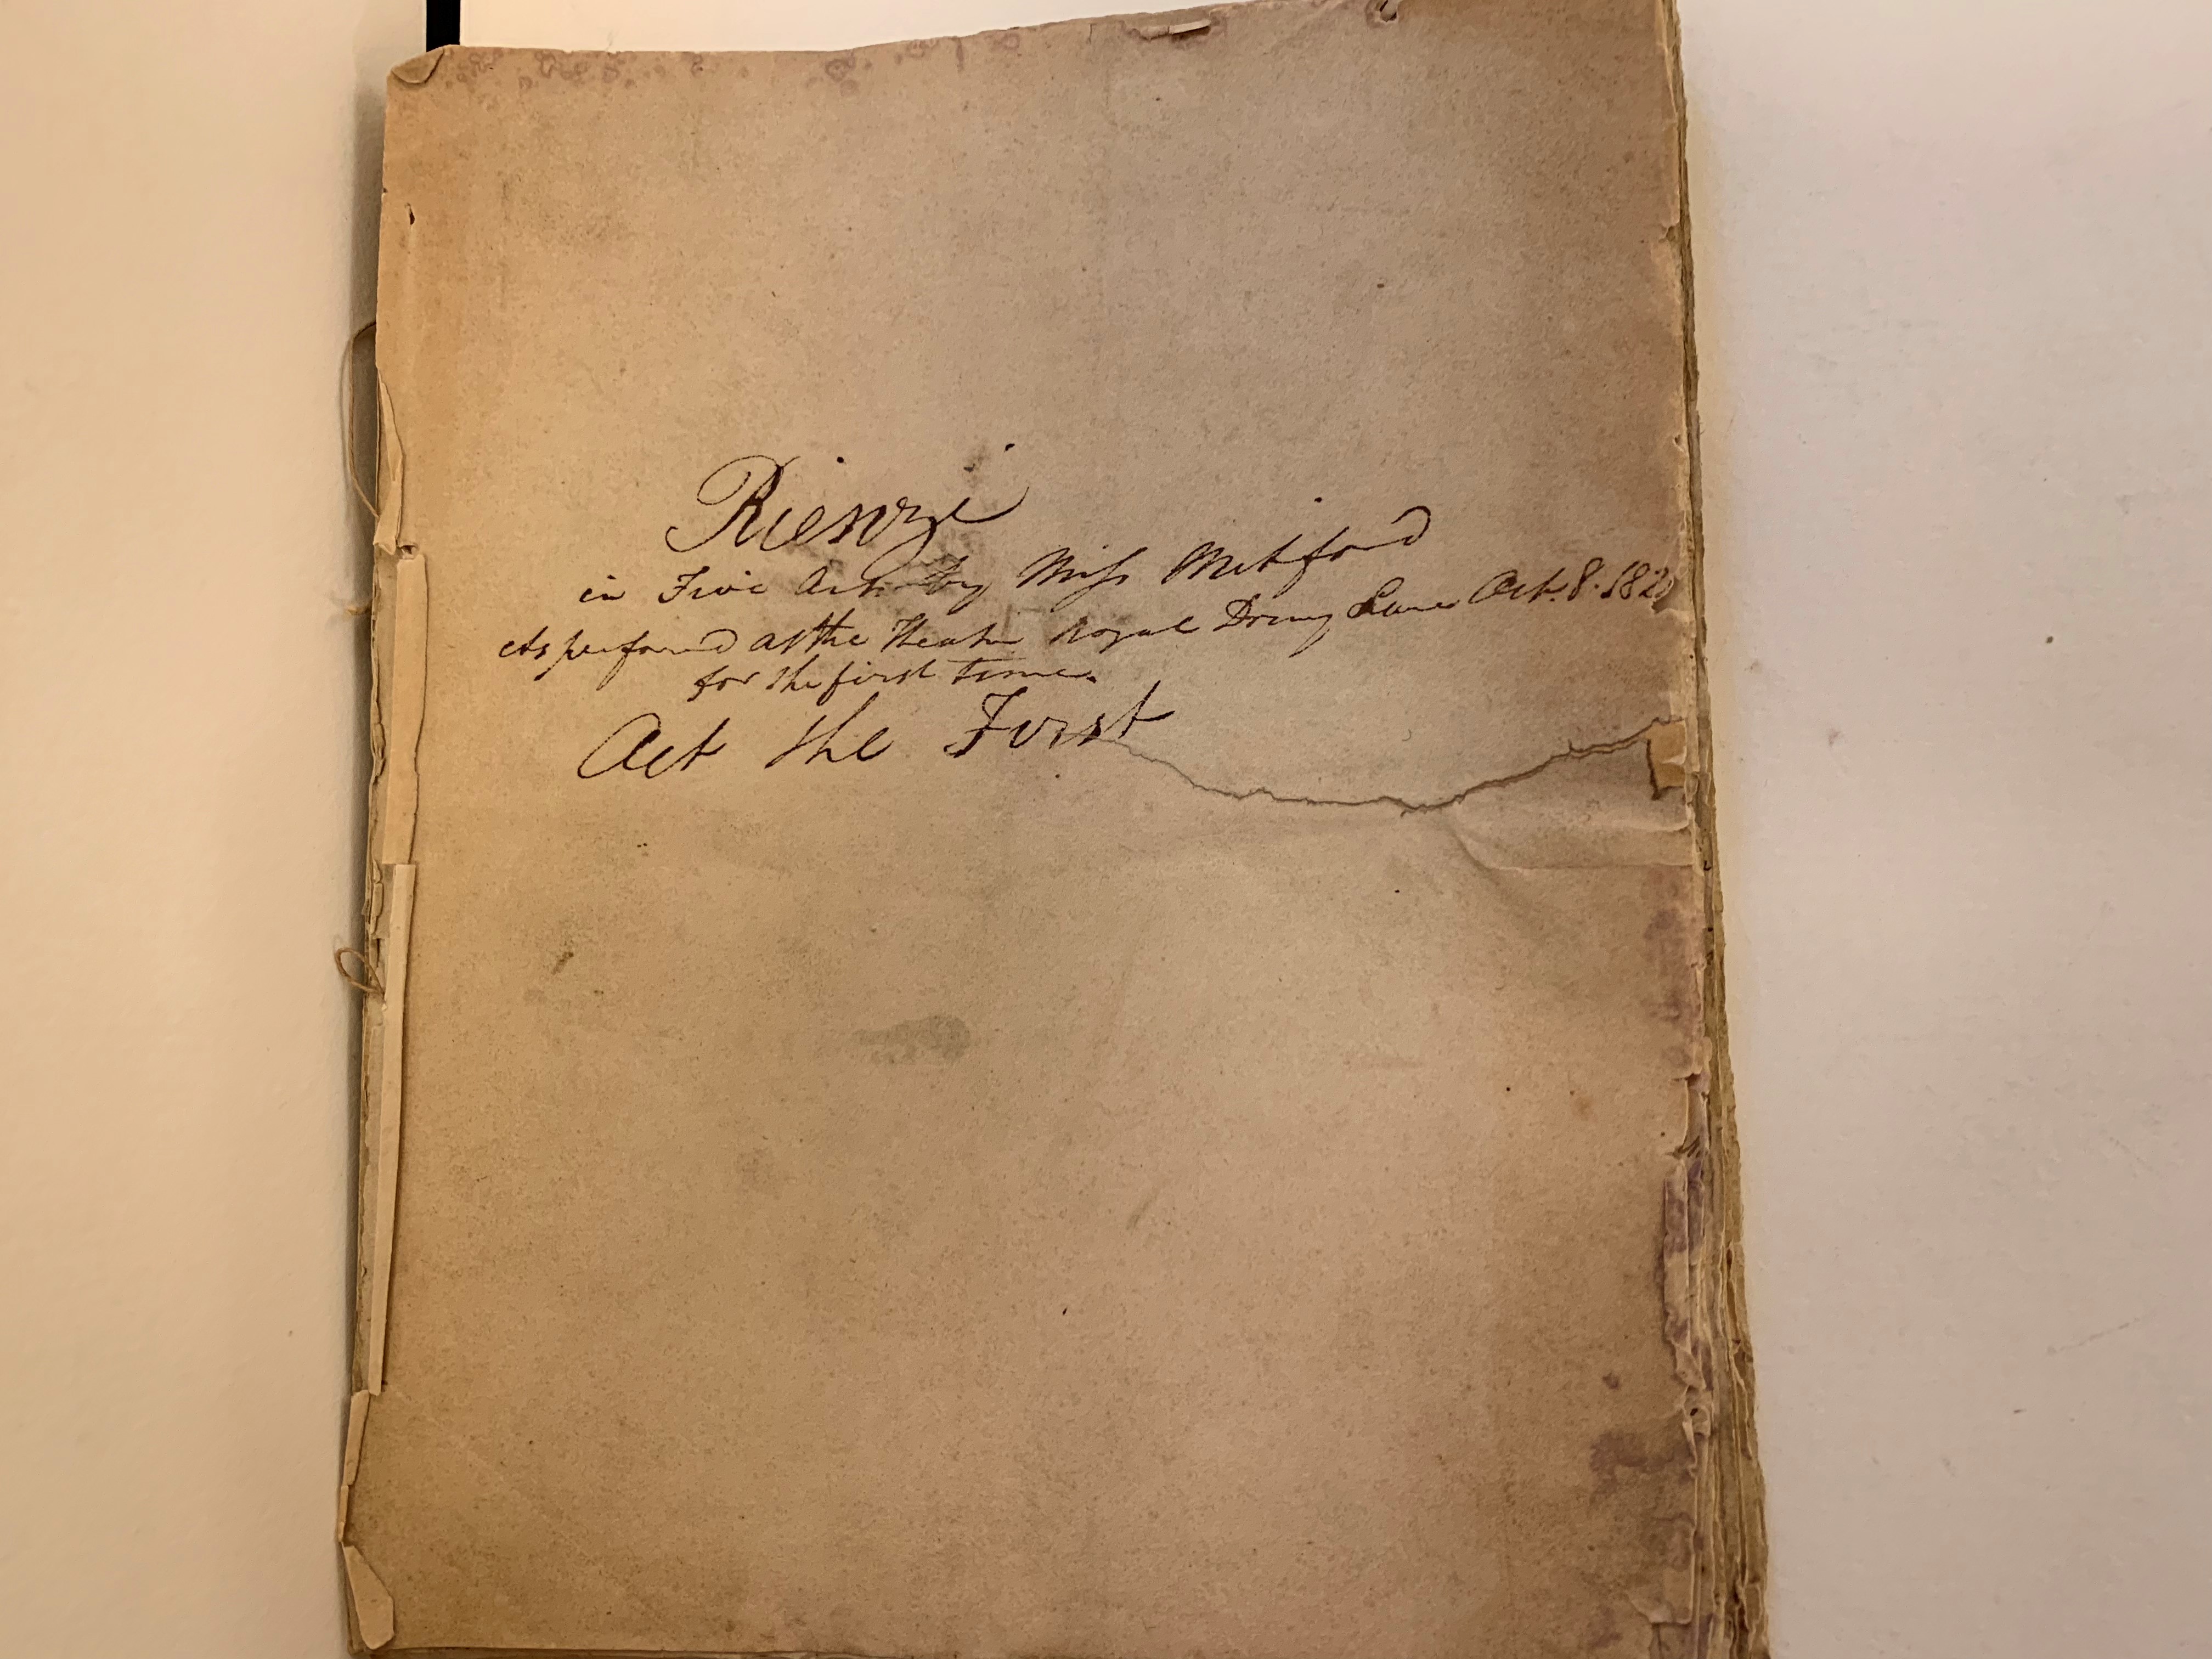 Rienzi
in Five Acts by Miss Mitford
As performd at the Theatre Royal Drury Lane Oct. 8. 182
for the first time.
Act the First